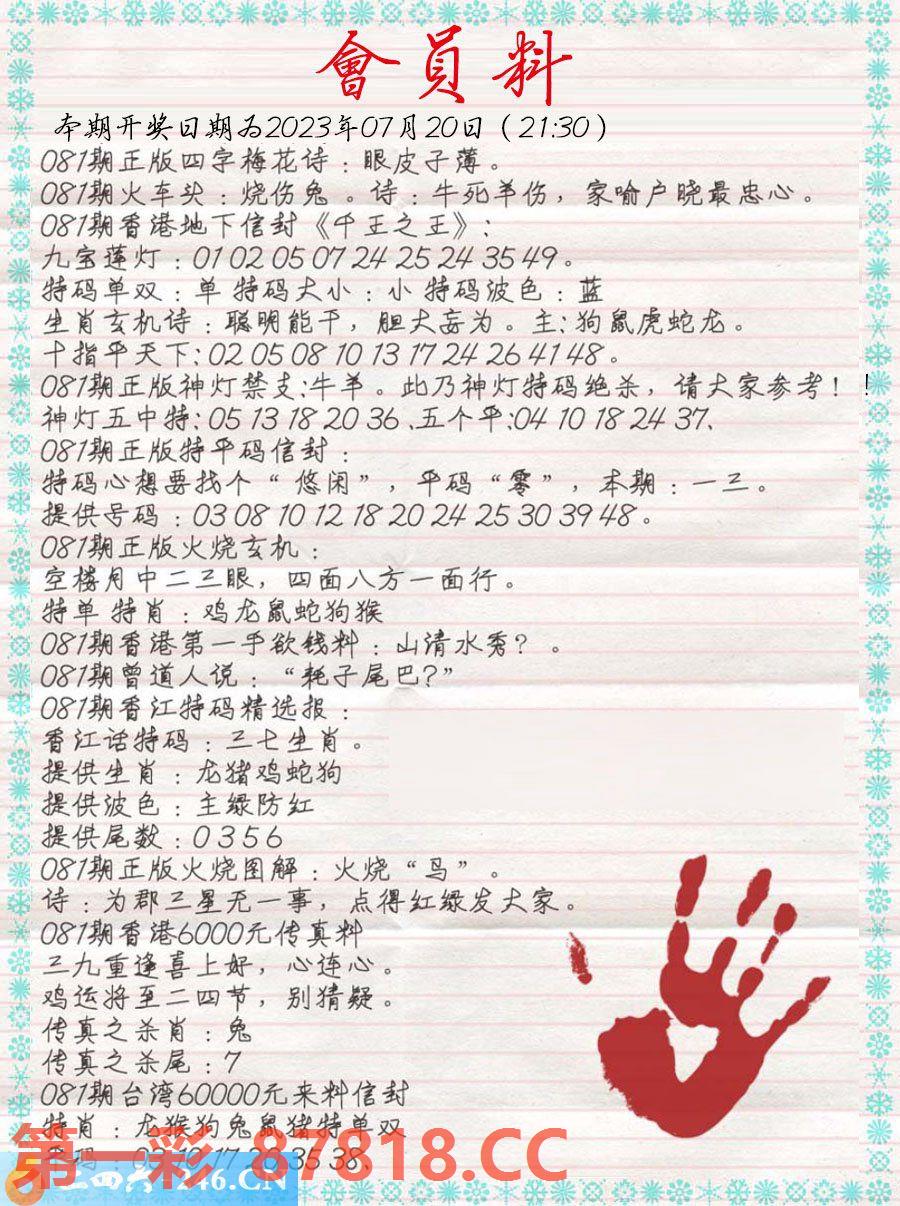 會員料
本期开奖日期为2023年07月20日（21:30）
081期正版四字梅花诗：眼皮子薄。
081期火车头：烧伤兔 。诗：牛死羊伤，家喻户晓最忠心。
081期香港地下信封《千王之王》:
九宝莲灯：01 02 05 07 24 25 24 35 49。
特码单双：单 特码大小：小 特码波色：蓝
生肖玄机诗：聪明能干，胆大妄为。主:狗鼠虎蛇龙。
十指平天下:02 05 08 10 13 17 24 26 41 48。
081期正版神灯禁支:牛羊。此乃神灯特码绝杀，请大家参考！！
神灯五中特:05 13 18 20 36、五个平:04 10 18 24 37、
081期正版特平码信封：
特码心想要找个“悠闲”，平码“零”，本期：一三。
提供号码：03 08 10 12 18 20 24 25 30 39 48。
081期正版火烧玄机：
空楼月中二三眼，四面八方一面行。
特单 特肖：鸡龙鼠蛇狗猴
081期香港第一手欲钱料：山清水秀？。
081期曾道人说：“耗子尾巴?”
081期香江特码精选报：
香江话特码：三七生肖。
提供生肖：龙猪鸡蛇狗
提供波色：主绿防红
提供尾数：0 3 5 6
081期正版火烧图解：火烧“鸟”。
诗：为郡三星无一事，点得红绿发大家。
081期香港6000元传真料
三九重逢喜上好，心连心。
鸡运将至二四节，别猜疑。
传真之杀肖：兔
传真之杀尾：7
081期台湾60000元来料信封
特肖：龙猴狗兔鼠猪特单双
第一彩 87818.CC
246.CN